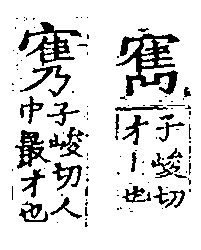 寯
子峻切
才丨也
子峻切人
中最才也